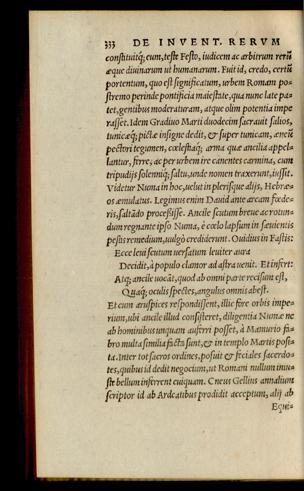 333 DE INVENT. RERVM
constituitq́; eum, teste Festo, iudicem ac arbitrum rerū
æque diuinarum ut humanarum. Fuit id, credo, certū
portentum, quo est significatum, urbem Romam po-
stremo perinde pontificia maiestate, qua nunc late pa-
tet, gentibus moderaturam, atque olim potentia impe
rasset. Idem Gradiuo Marti duodecim sacrauit salios,
tunicæq́; pictæ insigne dedit, & super tunicam, æneū
pectori tegumen, cœlestiaq́; arma quæ ancilia appel-
lantur, ferre, ac per urbem ire canentes carmina, cum
tripudijs solenniq́; saltu, unde nomen traxerunt, iussit.
Videtur Numa in hoc, uelut in plerisque alijs, Hebræ-
os æmulatus. Legimus enim Dauid ante arcam fœde-
ris, saltādo processisse. Ancile scutum breue ac rotun-
dum regnante ipso Numa, è cœlo lapsum in sæuientis
pestis remedium, uulgò crediderunt. Ouidius in Fastis:
Ecce leui scutum uersatum leuiter aura
Decidit, à populo clamor ad astra uenit. Et infert:
Atq́; ancile uocāt, quod ab omni parte recisum est,
Quaq́; oculis spectes, angulus omnis abest.
Et cum aruspices respondissent, illic fore orbis impe-
rium, ubi ancile illud consisteret, diligentia Numæ ne
ab hominibus unquam auferri posset, à Mamurio fa-
bro multa similia facta sunt, & in templo Martis posi-
ta. Inter tot sacros ordines, posuit & feciales sacerdo-
tes, quibus id dedit negocium, ut Romani nullum iniu-
ste bellum inferrent cuiquam. Cneus Gellius annalium
scriptor id ab Ardeatibus prodidit acceptum, alij ab
Eque-